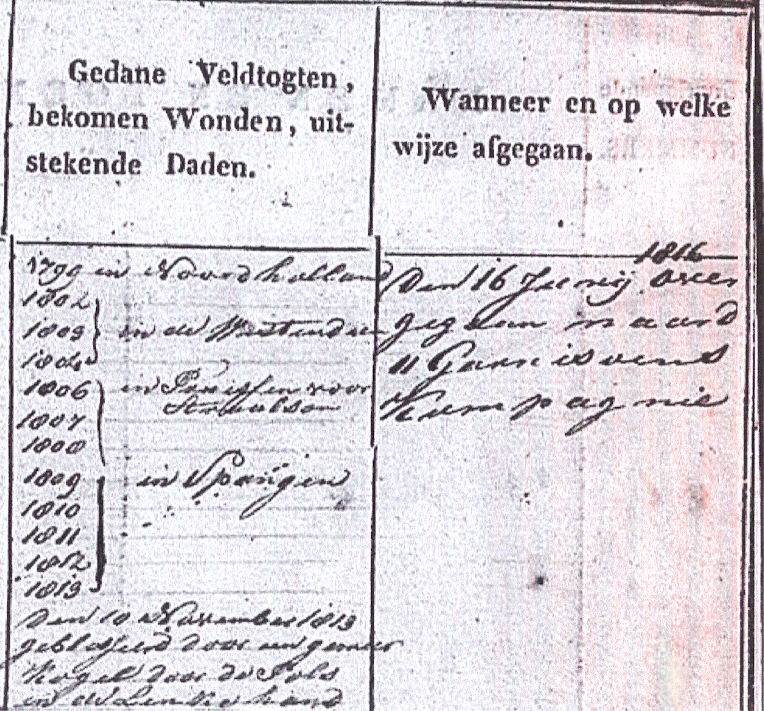 Gedane Veldtogten,
bekomen Wonden, uit-
stekende Daden.
Wanneer en op welke
wijze afgegaan.
1799 in Noordholland
1802
1803 in de Westindien
1804
1806 in Pruissen voor
Straalson
1807
1808
1809 in Spanjen
1810
1811
1812
1813
Den 10 November 1813
geblesseerd door een geweer
Kogel door de Pols
in de Linke hand
1816
Den 16 Junij over
gegaan naar d
11 Garnisoens
Kumpagnie